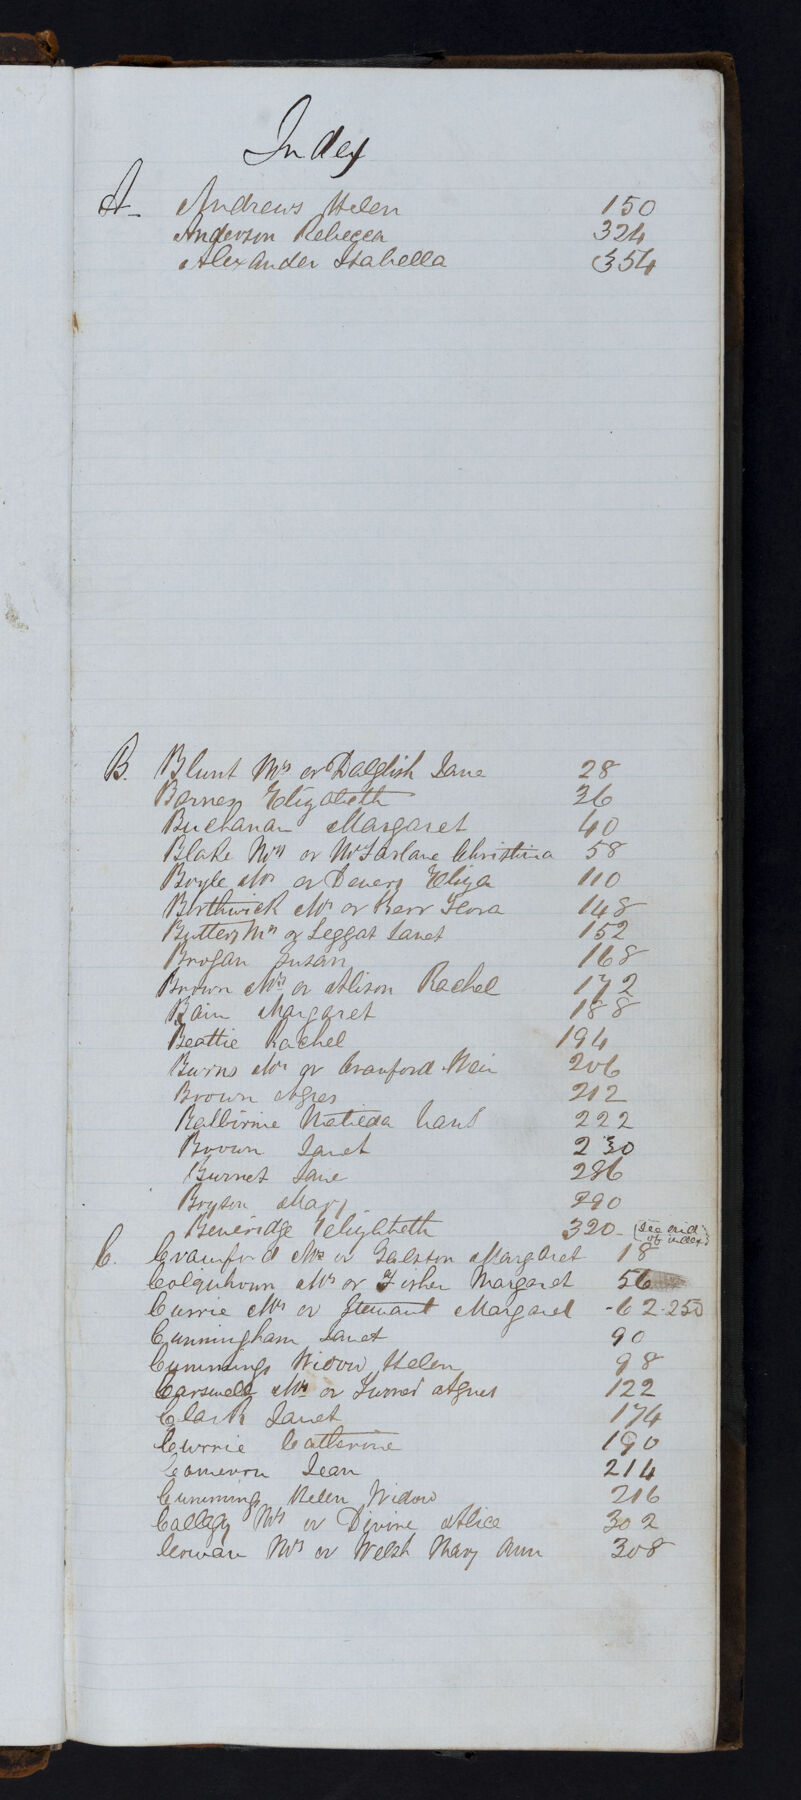 Index
A- Andrews Helen 150
Anderson Rebecca 324
Alexander Isabella 354
B. Blunt Mrs or Dalglish Jane 28
Barnes Elizabeth 36
Buchanan Margaret 40
Blake Mrs or McFarlane Christina 58
Boyle Mrs or Devers Eliza 110
Borthwick Mrs or Kerr Flora 148
Buttery Mrs or Leggat Janet 152
Brogan Susan 168
Brown Mrs or Alison Rachel 172
Bain Margaret 188
Beattie Rachel 194
Burns Mrs or Crawford Weir 206
Brown Agnes 212
Balbirnie Matilda 222
Brown Janet 230
Burnet Jane 286
Bryson Mary 290
Beveridge Elizabeth 320 - (See end of index)
C. Crawford Mrs or Galston Margaret 18
Colquhoun Mrs or Fisher Margaret 56
Currie Mrs or Stewart Margaret - 62-250
Cunningham Janet 90
Cummings Widow Helen 98
Carswell Mrs or Turner Agnes 122
Clark Janet 174
Currie Catherine 190
Cameron Jean 214
Cumming Helen Widow 216
Mrs or Divine Alice 302
Cowan Mrs or Welsh Mary Ann 308